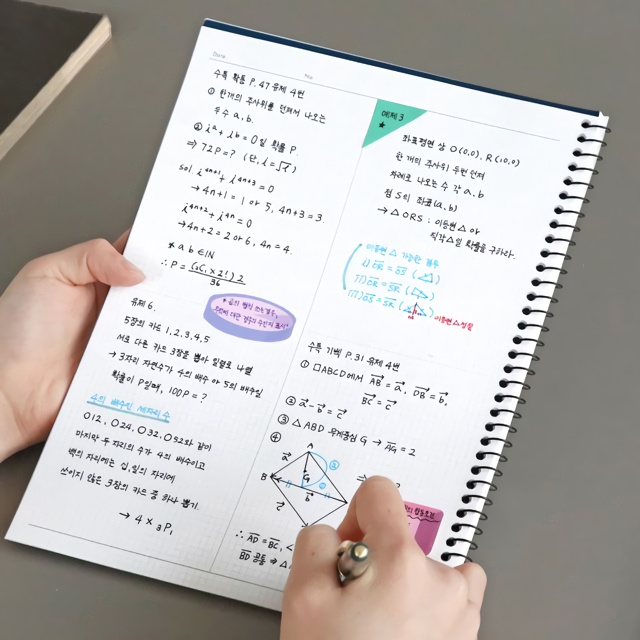 Date
No
수특 확통 P.47 유제 4번
① 한개의 주사위를 던져서 나오는
두수 a, b.
② i^a + i^b = 0 일 확률 P.
⇒ 72P = ? (단, i = √-1)
sol. i^4n+1, i^4n+3 = 0
→ 4n+1 = 1 or 5, 4n+3 = 3.
i^4n+2 + i^4n = 0
→ 4n+2 = 2 or 6, 4n = 4.
* a b ∈ N
36
유제 6.
5장의 카드 1, 2, 3, 4, 5
서로 다른 카드 3장을 뽑아 일렬로 나열
→ 3자리 자연수가 4의 배수 or 5의 배수일
확률이 P일때, 100P = ?
4의 배수인 세자리 수
012, 024, 032, 052와 같이
마지막 두 자리의 수가 4의 배수이고
백의 자리에는 십, 일의 자리에
쓰이지 않은 3장의 카드 중 하나 뽑기.
→ 4 × 3P1
예제 3
★
좌표평면 상 O(0,0), R(10,0)
한 개의 주사위 두번 던져
차례로 나오는 수 각 a, b
점 S의 좌표 (a, b)
→ △ORS : 이등변 △ or
직각△일 확률을 구하라.
이등변 △ 가능한 경우
이등변△
수특 기벡 P.31 유제 4번
① □ABCD에서 AB = a, DB = b,
BC = c
② a - b = c
③ △ABD 무게중심 G → AG = 2
④
A
a
G
B
b
c
∴ AD = BC,
BD 공통 ⇒ △